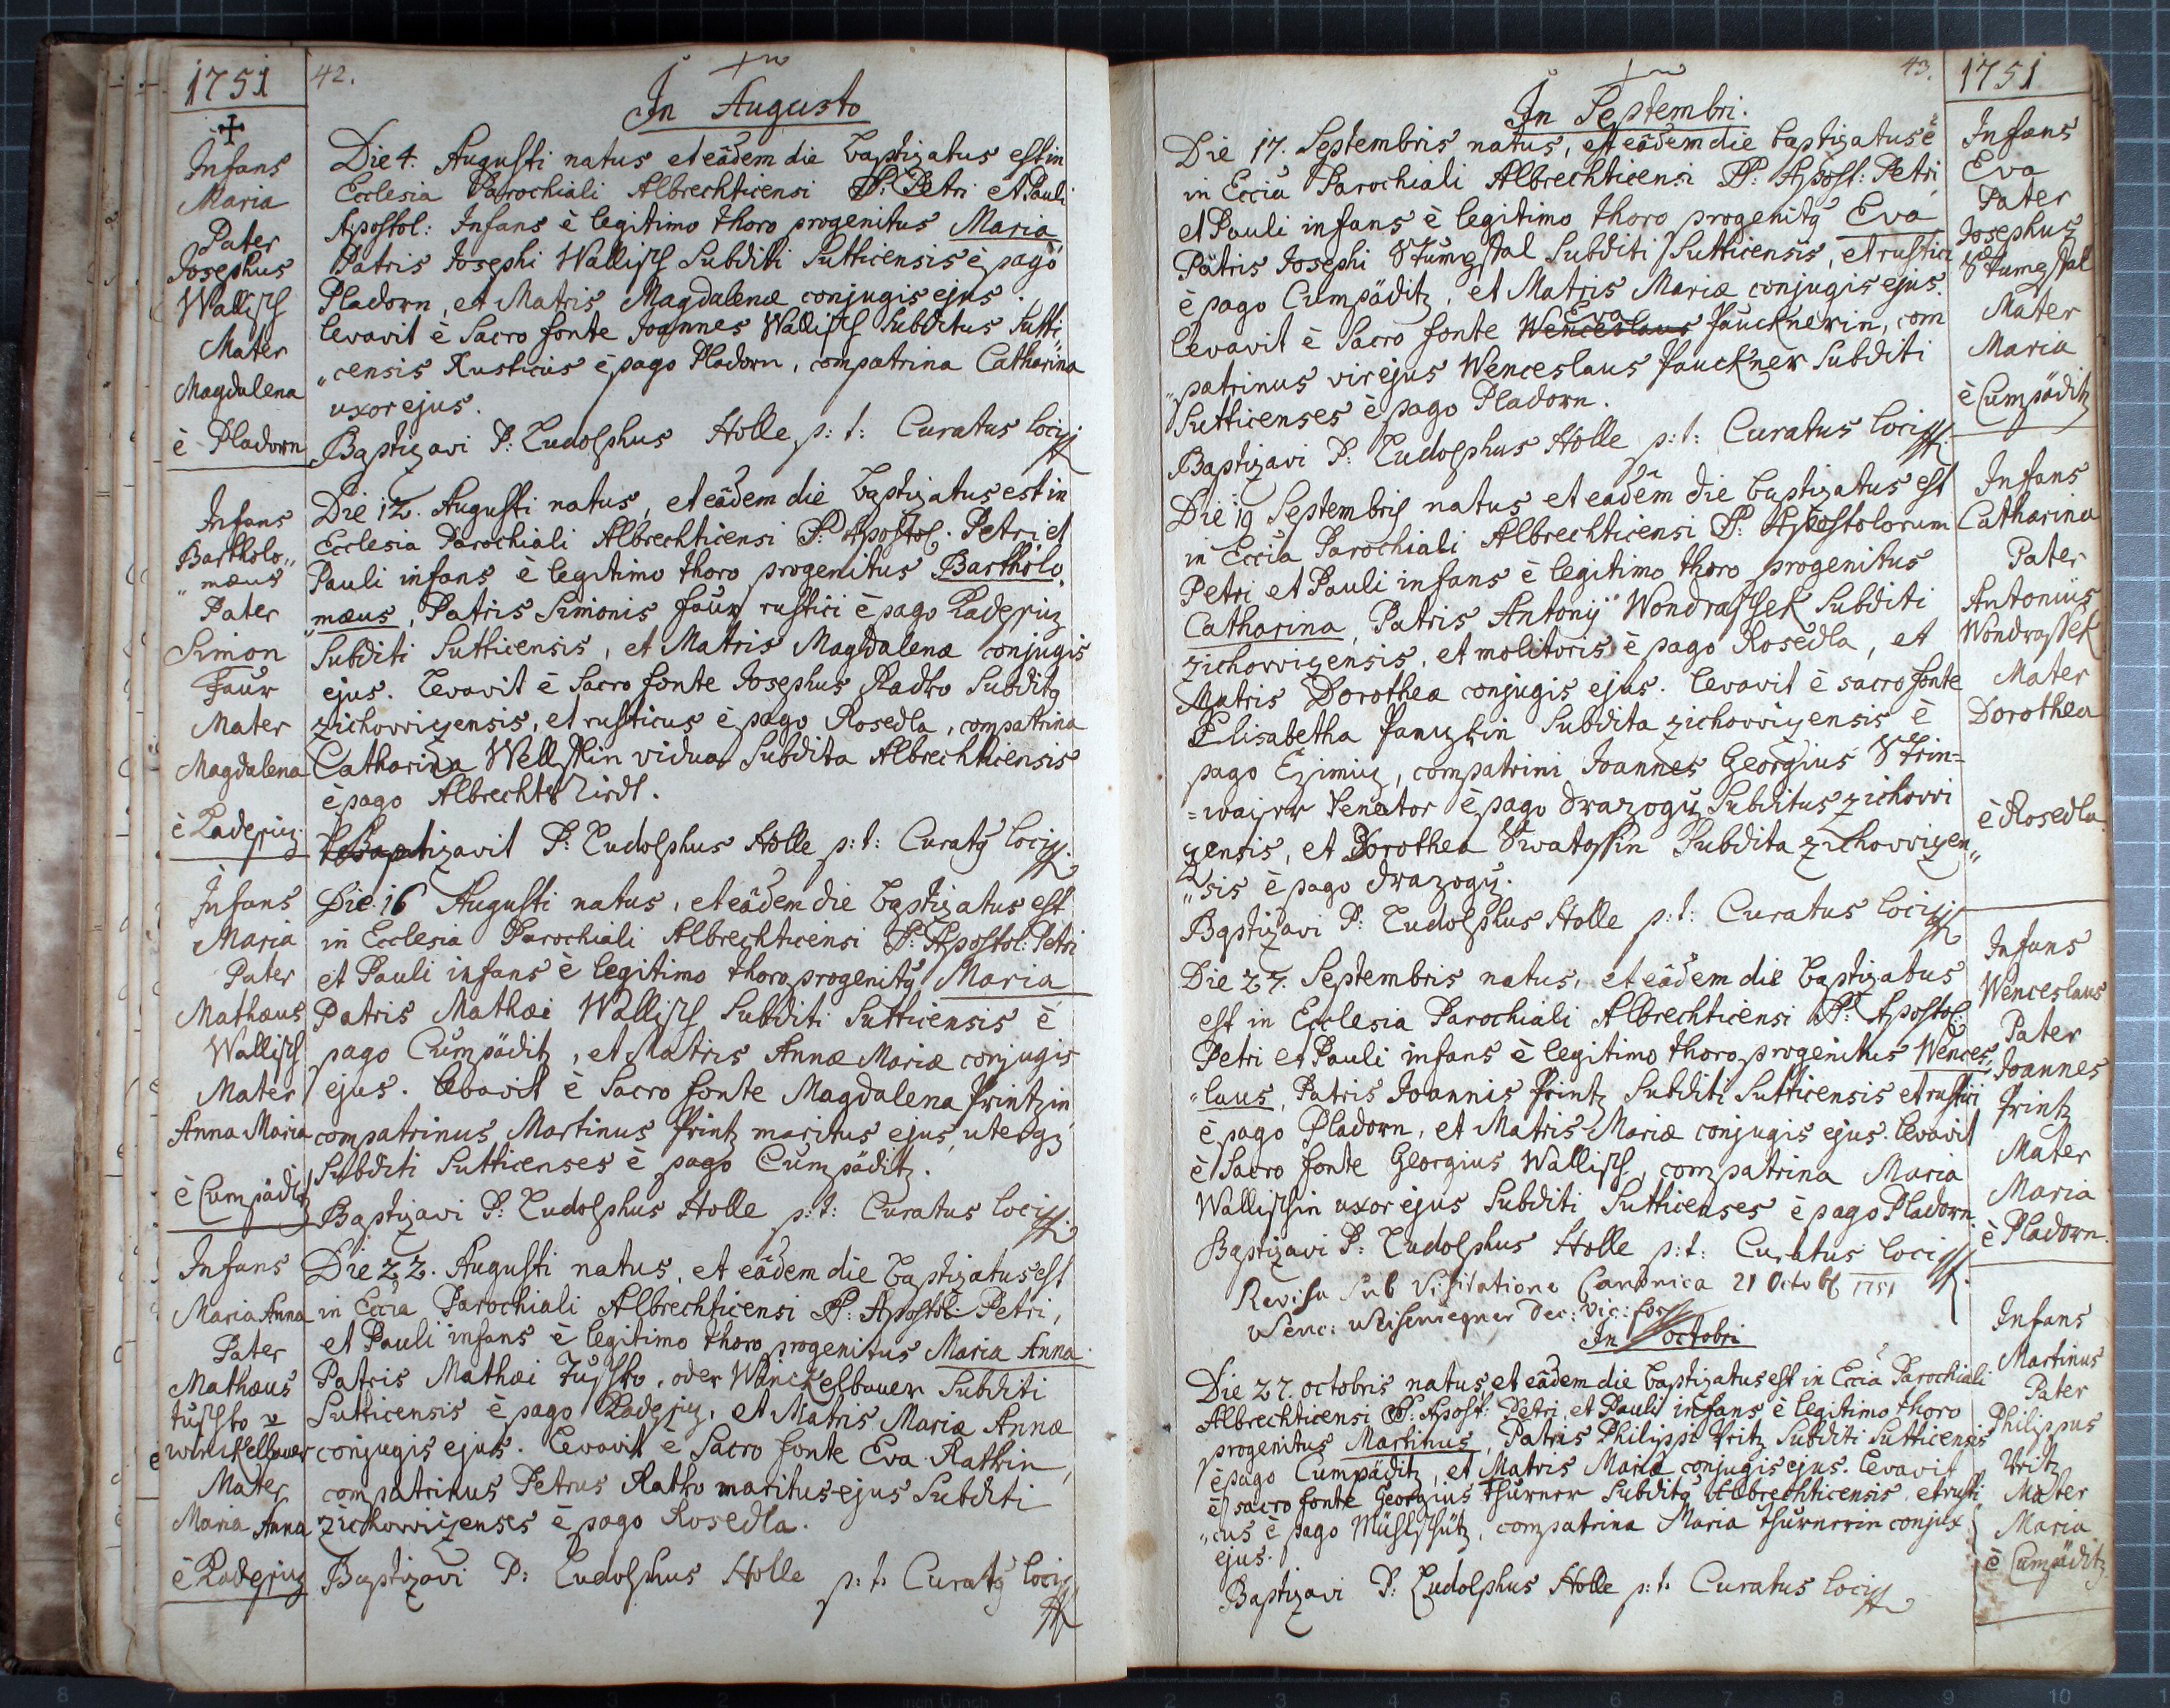 1751
✝
Infans
Maria
Pater
Josephus
Wallisch
Mater
Magdalena
è Pladorn
Infans
Bartholo„
„mæus
Pater
Simon
Faur
Mater
Magdalena
è Radeſiz
Infans
Maria
Pater
Mathæus
Wallisch
Mater
Anna Maria
è Cumpäditz
Infans
Maria Anna
Pater
Mathæus
Winckelbauer
Mater
Maria Anna
è Radeſiz
42.
In Augusto
Die 4. Augusti natus et eâdem die baptizatus est in
Ecclesia Parochiali Albrechticensi SS: Petri et Pauli
Apostol: Infans è legitimo thoro progenitus Maria
Patris Josephi Wallisch Subditi Sutticensis è pago
Pladorn, et Matris Magdalenæ conjugis ejus.
levavit è Sacro fonte Joannes Wallisch Subditus Sutti„
„censis Rusticus è pago Pladorn, compatrina Catharina
uxor ejus.
Baptizavi P: Ludolphus Holle p: t: Curatus loci
Die 12. Augusti natus, et eâdem die baptizatus est in
Ecclesia Parochiali Albrechticensi SS: Apostol. Petri et
Pauli infans è legitimo thoro progenitus Bartholo„
„mæus, Patris Simonis Faur rustici è pago Radeſiz
Subditi Sutticensis, et Matris Magdalenæ conjugis
ejus. Levavit è Sacro fonte Josephus Radko Subditq
zichovvizensis, et rusticus è pago Rosedla, compatrina
Catharina Wellstin vidua Subdita Albrechticensis
è pago Albrechts
Baptizavit P: Ludolphus Holle p: t: Curatq loci
Die 16 Augusti natus, et eâdem die baptizatus est
in Ecclesia Parochiali Albrechticensi SS: Apostol: Petri
et Pauli infans è legitimo thoro progenitq Maria
Patris Mathæi Wallisch Subditi Sutticensis è
pago Cumpäditz, et Matris Annæ Mariæ conjugis
ejus. levavit è Sacro fonte Magdalena Printzin
compatrinus Martinus Printz maritus ejus, uterqz
Subditi Sutticenses è pago Cumpäditz.
Baptizavi P: Ludolphus Holle p: t: Curatus loci
Die 22. Augusti natus, et eâdem die baptizatus est
in Eccia Parochiali Albrechticensi SS: Apostol: Petri,
et Pauli infans è legitimo thoro progenitus Maria Anna
Patris Mathæi oder Winckelbauer Subditi
Sutticensis è pago Radeſiz, et Matris Mariæ Annæ
conjugis ejus. Levavit è Sacro fonte Eva Rathin,
compatrinus Petrus Ratko maritus ejus Subditi
zichovvizenses è pago Rosedla.
Baptizavi P: Ludolphus Holle p: t: Curatq loci
43.
In Septembri.
Die 17. Septembris natus, et eâdem die baptizatus ē
in Eccia Parochiali Albrechticensi SS: Apost: Petri
et Pauli infans è legitimo thoro progenitq Eva
Patris Josephi Stumgstal Subditi Sutticensis, et rustici
è pago Cumpäditz, et Matris Mariæ conjugis ejus.
Eva
levavit è Sacro fonte Wenceslaus Paucknerin, com
„patrinus vir ejus Wenceslaus Pauckner Subditi
Sutticenses è pago Pladorn.
Baptizavi P: Ludolphus Holle p: t: Curatus loci
Die 19 Septembris natus et eadem die baptizatus est
in Eccia Parochiali Albrechticensi SS: Apostolorum
Petri et Pauli infans è legitimo thoro progenitus
Catharina, Patris Antonij Wondraschek Subditi
zichovvizensis, et molitoris è pago Rosedla, et
Matris Dorothea conjugis ejus. levavit è sacro fonte
Elisabetha Subdita zichovvizensis è
pago Ezimiz, compatrini Joannes Georgius Strin=
=wajrr Venator è pago Drazogu Subditus zichovvi
zensis, et Dorothea Swatoschin Subdita zichovvizen„
„sis è pago drazogu.
Baptizavi P: Ludolphus Holle p: t: Curatus loci
Die 27. Septembris natus, et eâdem die baptizatus
est in Ecclesia Parochiali Albrechticensi SS: Apostol:
Petri et Pauli infans è legitimo thoro progenitus Wences„
„laus, Patris Joannis Printz Subditi Sutticensis et rustici
è pago Pladorn, et Matris Mariæ conjugis ejus. levavit
è Sacro fonte Georgius Wallisch, compatrina Maria
Wallischin uxor ejus Subditi Sutticenses è pago Pladorn.
Baptizavi P: Ludolphus Holle p: t: Curatus loci
Revisa sub Visitatione Canonica 21 Octobr 1751
Wenc: Dec: Vic: for
In octobri
Die 27. octobris natus, et eâdem die baptizatus est in Eccia Parochiali
Albrechticensi SS: Apost: Petri et Pauli infans è legitimo thoro
progenitus Martinus, Patris Philippi Pritz Subditi Sutticensis
è pago Cumpäditz, et Matris Mariæ conjugis ejus. levavit
è sacro fonte Georgius Thurner Subditq Albrechticensis, et rusti
„cus è pago Mühlschütz, compatrina Maria Thurnerin conjux
ejus.
Baptizavi P: Ludolphus Holle p: t: Curatus loci
1751
Infans
Eva
Pater
Josephus
Stumgstal
Mater
Maria
è Cumpäditz
Infans
Catharina
Pater
Antonius
Wondraschek
Mater
Dorothea
è Rosedla
Infans
Wenceslaus
Pater
Joannes
Printz
Mater
Maria
è Pladorn.
Infans
Martinus
Pater
Philippus
Pritz
Mater
Maria
è Cumpäditz